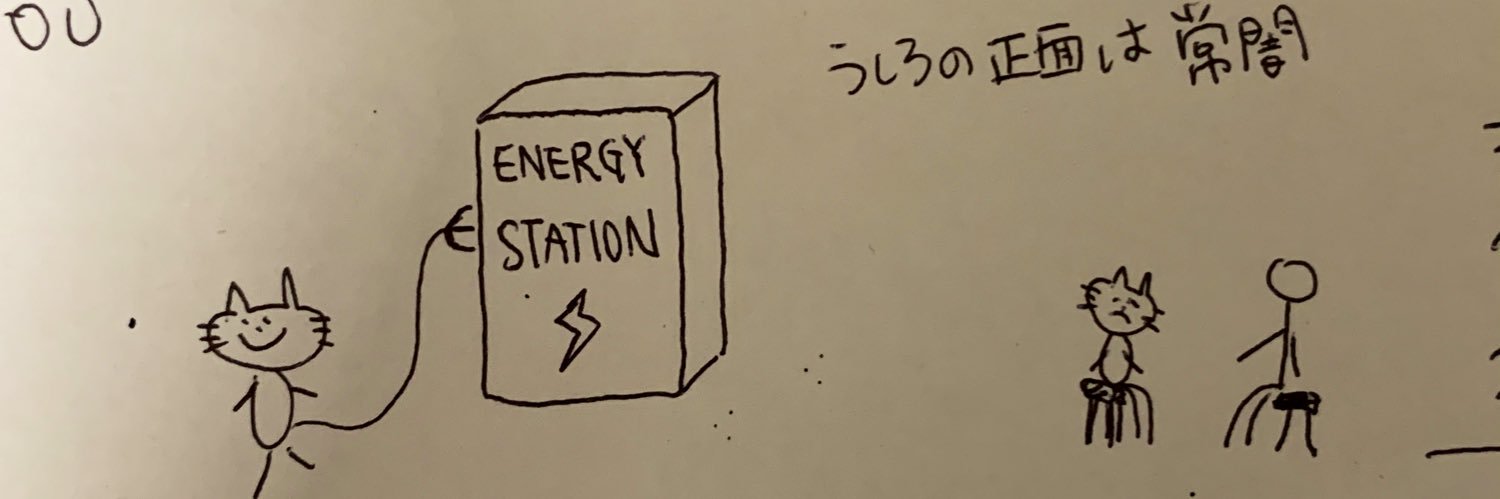 OU
うしろの正面は常闇
ENERGY
STATION